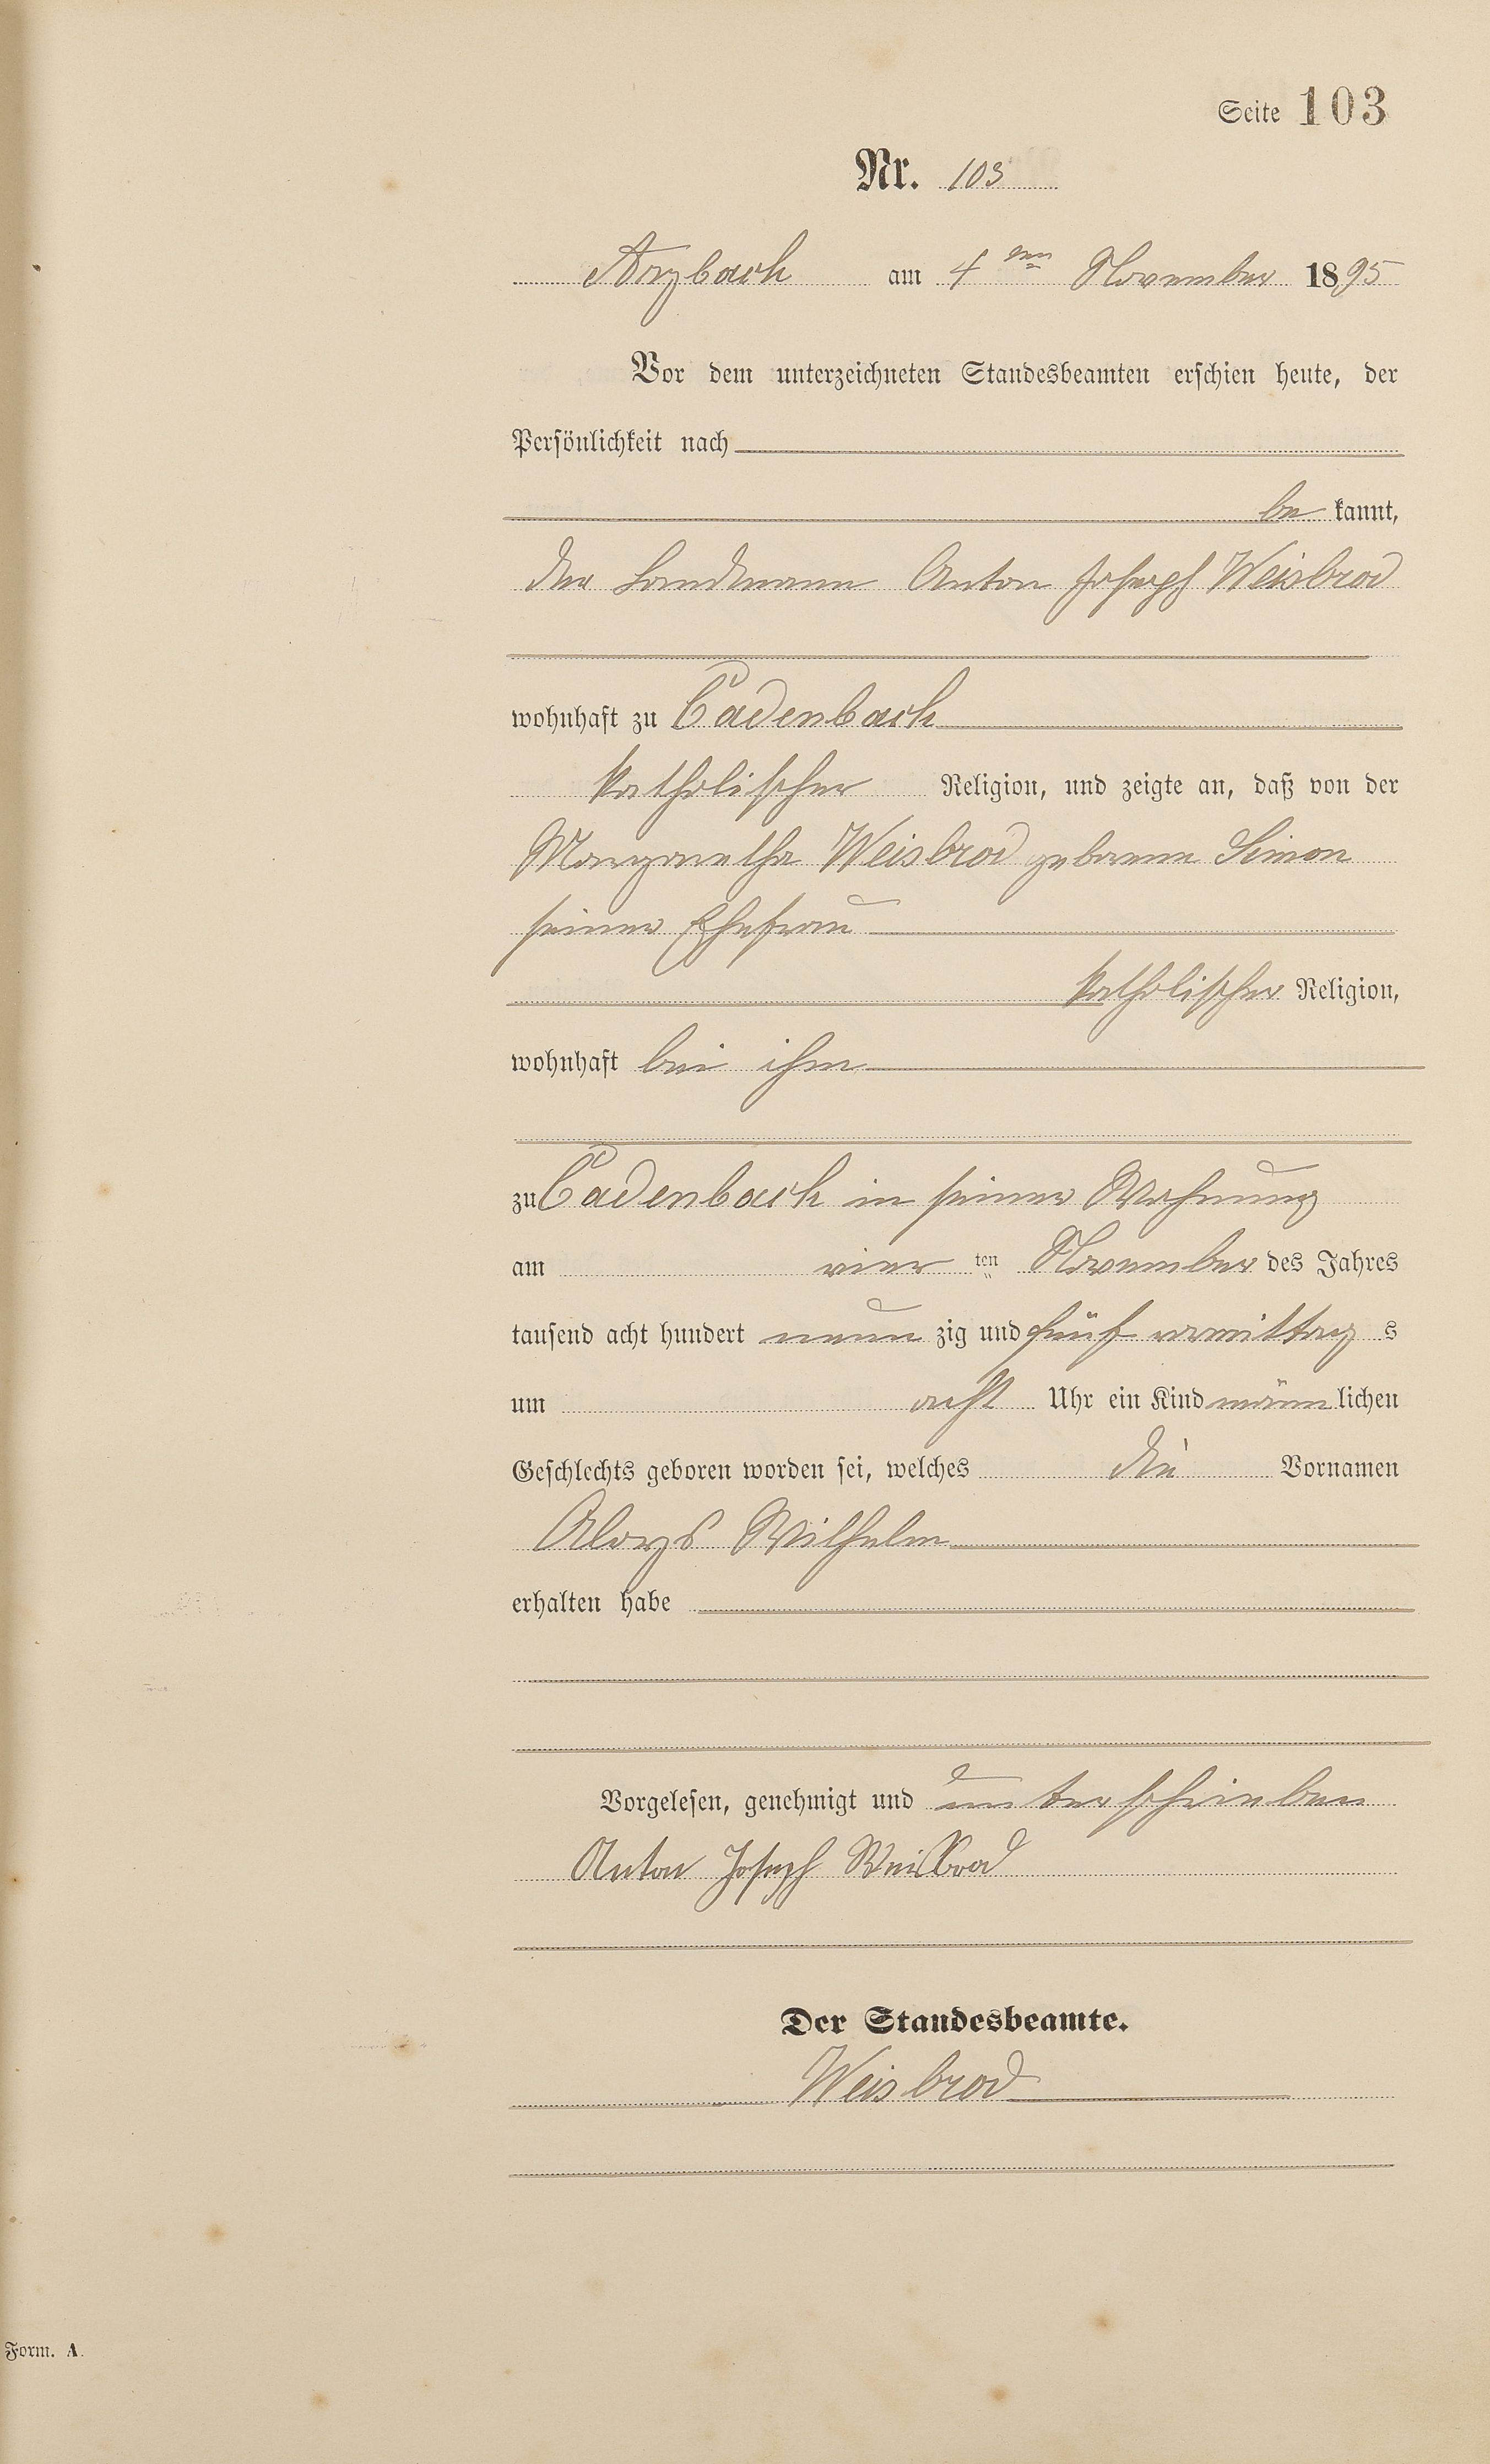 Seite 103
Nr. 103
Arzbach am 4ten November 1895
Vor dem unterzeichneten Standesbeamten erschien heute, der
Persönlichkeit nach
be kannt,
der Landmann Anton Joseph Weisbrod
wohnhaft zu Cadenbach
katholischer Religion, und zeigte an, daß von der
Margaretha Weisbrod geborene Simon
seiner Ehefrau
katholischer Religion,
wohnhaft bei ihm
zu Cadenbach in seiner Wohnung
am vier ten November des Jahres
tausend acht hundert neun zig und fünf vormittag s
um acht Uhr ein Kind männ lichen
Geschlechts geboren worden sei, welches die Vornamen
Aloys Wilhelm
erhalten habe
Vorgelesen, genehmigt und unterschrieben
Anton Joseph Weisbrod
Der Standesbeamte.
Weisbrod
Form. A.